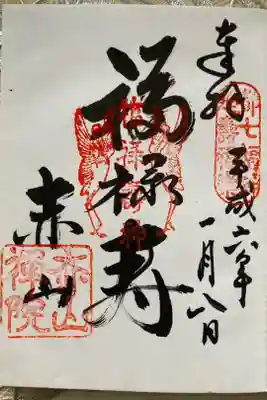 奉拝
平成六年
一月八日
福禄寿
赤山
赤山
禅院